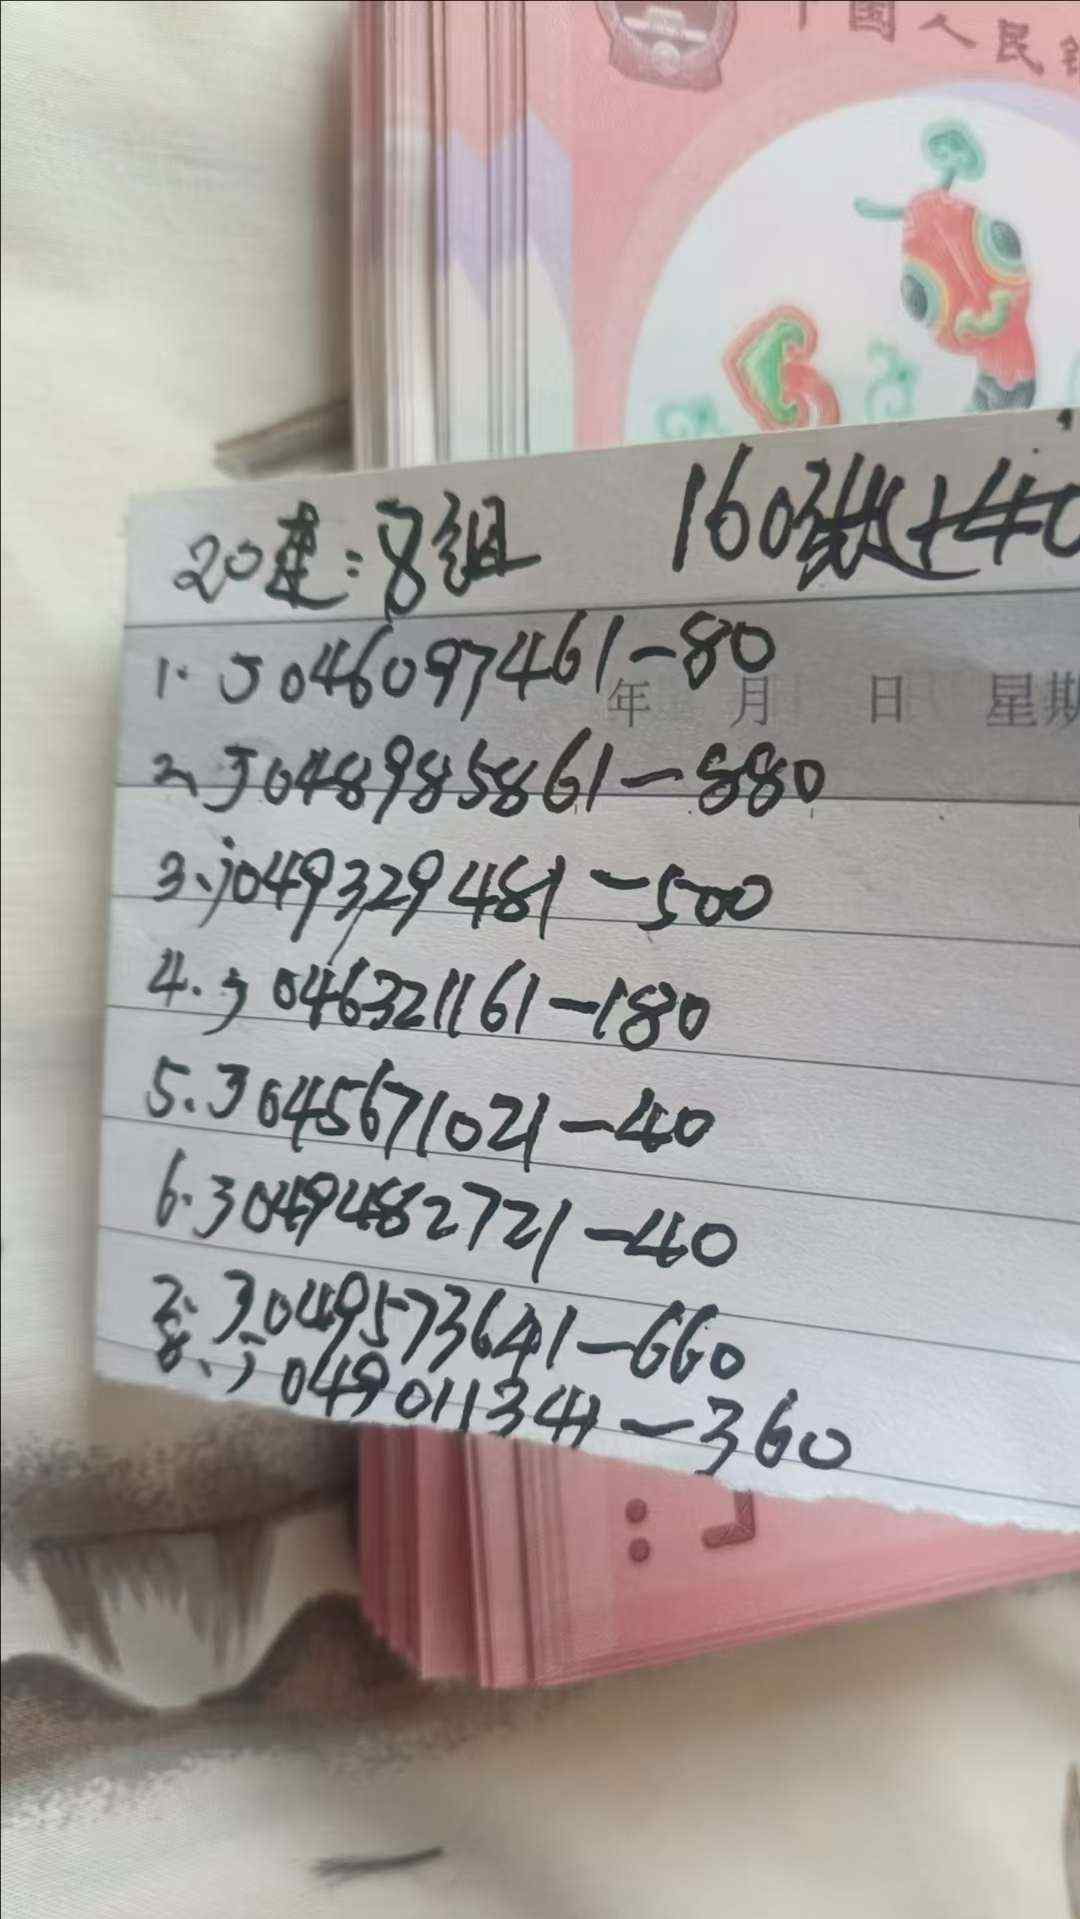 中国人民银
20连:8组 160张+40
1. J046097461-80
年 月 日 星期
2、J048985861-880
3、J049329481-500
4. J046321161-180
5. J045671021-40
6. J049482721-40
7. J049573641-660
8、J049011341-360